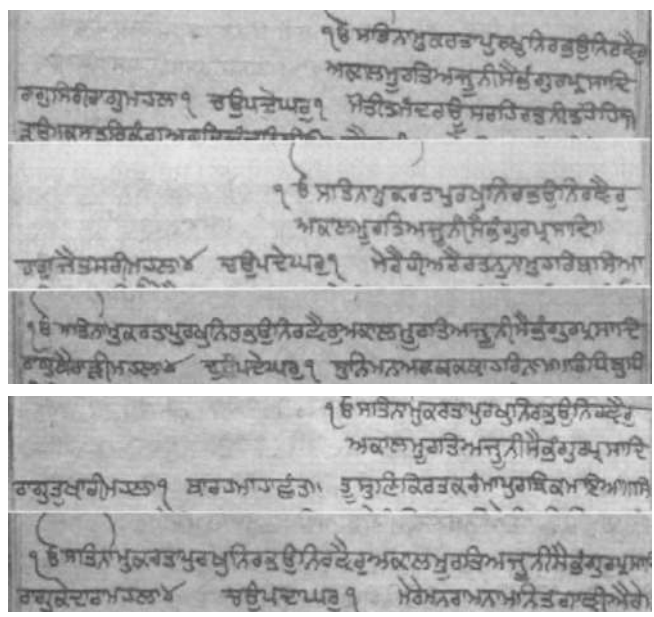 ੧ੳ ਸਤਿਨਾਮੁਕਰਤਾਪੁਰਖੁਨਿਰਭਉਨਿਰਵੈਰੁ
ਅਕਾਲਮੂਰਤਿਅਜੂਨੀਸੈਭੰਗੁਰਪ੍ਰਸਾਦਿ
ਰਾਗੁਸਿਰੀਰਾਗੁਮਹਲਾ੧ ਚਉਪਦੇਘਰੁ੧ ਮੋਤੀਤਮੰਦਰਊਸਰਹਿਰਤਨੀਤਹੋਹਿਜ
੧ ੳ ਸਤਿਨਾਮੁਕਰਤਾਪੁਰਖੁਨਿਰਭਉਨਿਰਵੈਰੁ
ਅਕਾਲਮੂਰਤਿਅਜੂਨੀਸੈਭੰਗੁਰਪ੍ਰਸਾਦਿ॥
ਰਾਗੁਜੈਤਸਰੀਮਹਲਾ੪ ਚਉਪਦੇਘਰੁ੧ ਮੇਰੈਹੀਅਰੈਰਤਨੁਨਾਮੁਹਰਿਬਸਿਆ
੧ੳ ਸਤਿਨਾਮੁਕਰਤਾਪੁਰਖੁਨਿਰਭਉਨਿਰਵੈਰੁਅਕਾਲਮੂਰਤਿਅਜੂਨੀਸੈਭੰਗੁਰਪ੍ਰਸਾਦਿ
ਰਾਗੁਬੈਰਾੜੀਮਹਲਾ੪ ਦੁਪਦੇਘਰੁ੧ ਸੁਨਿਮਨਅਕਥਕਥਾਹਰਿਨਾਮ
੧ੳ ਸਤਿਨਾਮੁਕਰਤਾਪੁਰਖੁਨਿਰਭਉਨਿਰਵੈਰੁ
ਅਕਾਲਮੂਰਤਿਅਜੂਨੀਸੈਭੰਗੁਰਪ੍ਰਸਾਦਿ
ਰਾਗੁਤੁਖਾਰੀਮਹਲਾ੧ ਬਾਰਹਮਾਹਾਛੰਤ॥ ਤੂਸੁਣਿਕਿਰਤਕਰੰਮਾਪੁਰਬਿਕਮਾਇਆ
੧ ੳ ਸਤਿਨਾਮੁਕਰਤਾਪੁਰਖੁਨਿਰਭਉਨਿਰਵੈਰੁਅਕਾਲਮੂਰਤਿਅਜੂਨੀਸੈਭੰਗੁਰਪ੍ਰਸਾ
ਰਾਗੁਕੇਦਾਰਾਮਹਲਾ੪ ਚਉਪਦਾਘਰੁ੧ ਮੇਰੇਮਨਰਾਮਨਾਮਨਿਤਗਾਵੀਐਰੇ